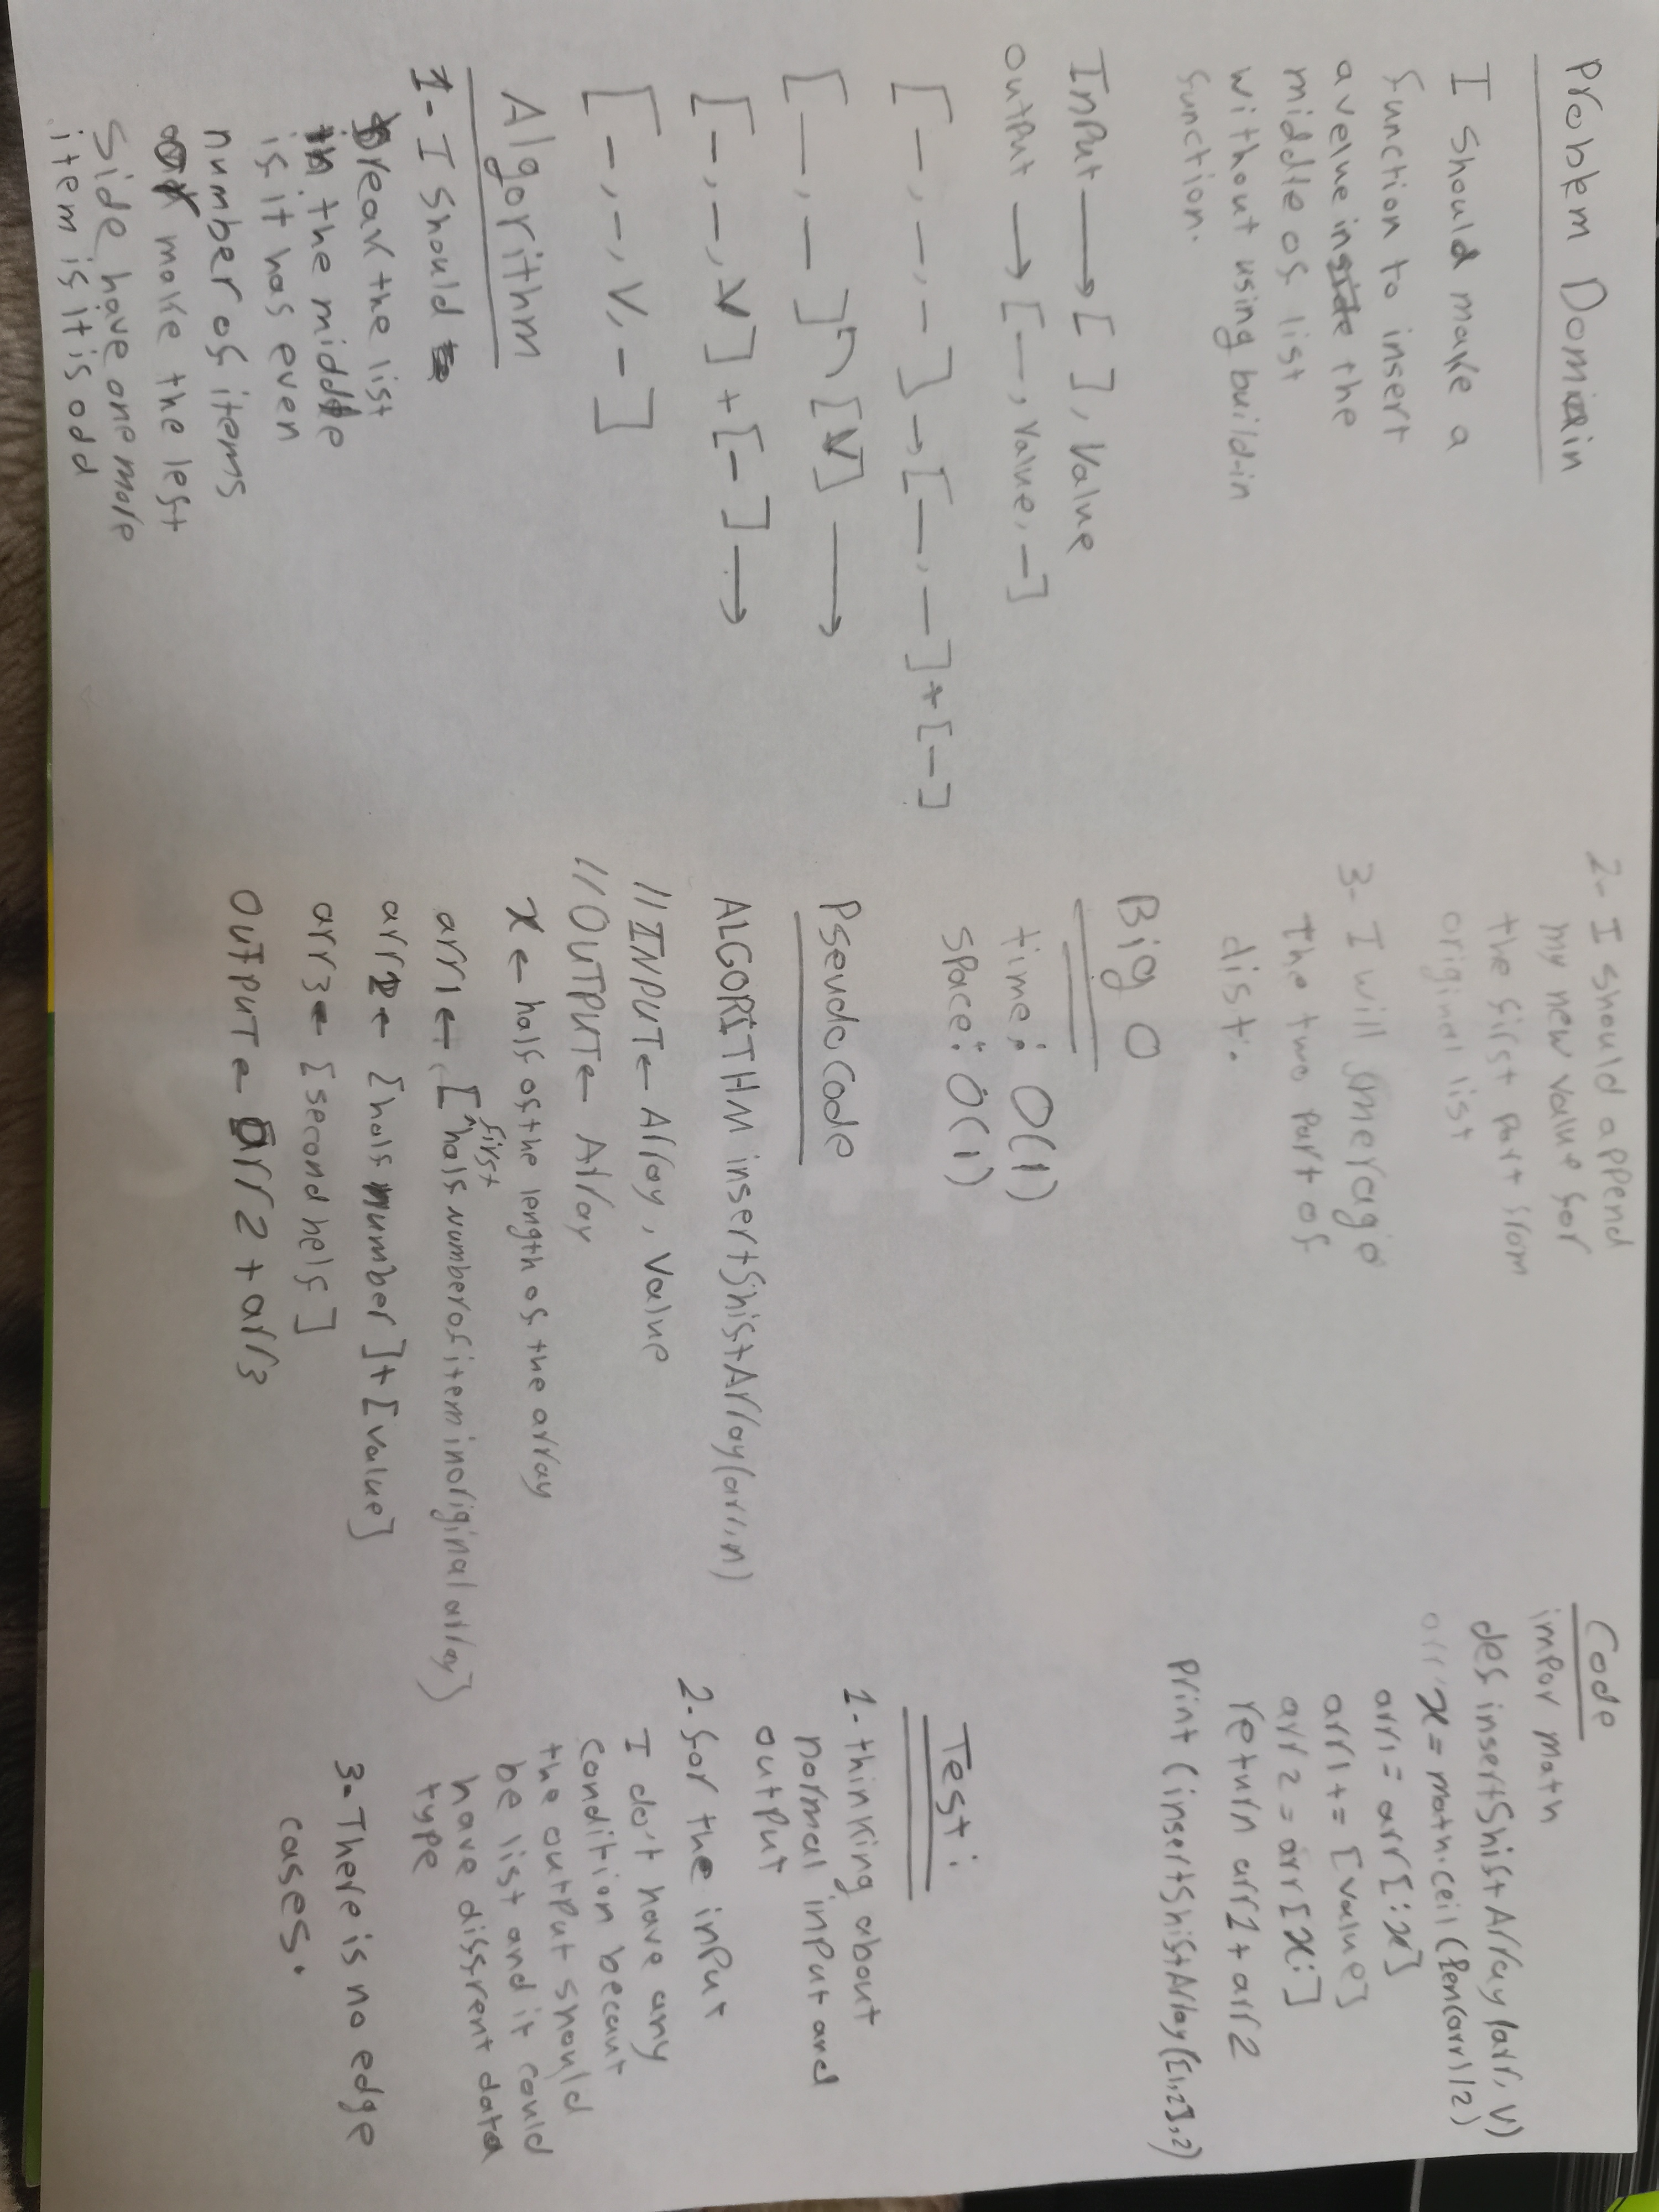 Problem Domain
I should make a
function to insert
a velue inside the
middle of list
without using build-in
function.
Input → [ ], Value
output → [—, Value, —]
[—, —, —] → [—, —] + [—]
[—, —] [V] →
[—, —, V] + [—] →
[—, —, V, —]
Algorithm
1- I should
break the list
in the middle
if it has even
number of items
make the left
side have one more
item if it is odd
2- I should append
my new value for
the first part from
original list
3- I will merage
The two part of
dist.
Big O
time: O(1)
space: O(1)
Pseudo code
ALGORITHM insertShiftArray(arr,n)
//INPUT ← Array, Value
//OUTPUT ← Array
x ← half of the length of the array
arr1 ← [first half number of item in original array]
arr2 ← [half number] + [value]
arr3 ← [second helf]
OUTPUT ← arr2 + arr3
Code
impor math
def insertShiftArray(arr, V)
x = math.ceil(len(arr)/2)
arr1 = arr[:x]
arr1 += [value]
arr2 = arr[x:]
return arr1 + arr2
Print(insertShiftArray([1,2],2)
Test:
1- thinking about
normal input and
output
2- for the input
I do't have any
condition becaut
the output should
be list and it could
have diffrent data
type
3- There is no edge
cases.